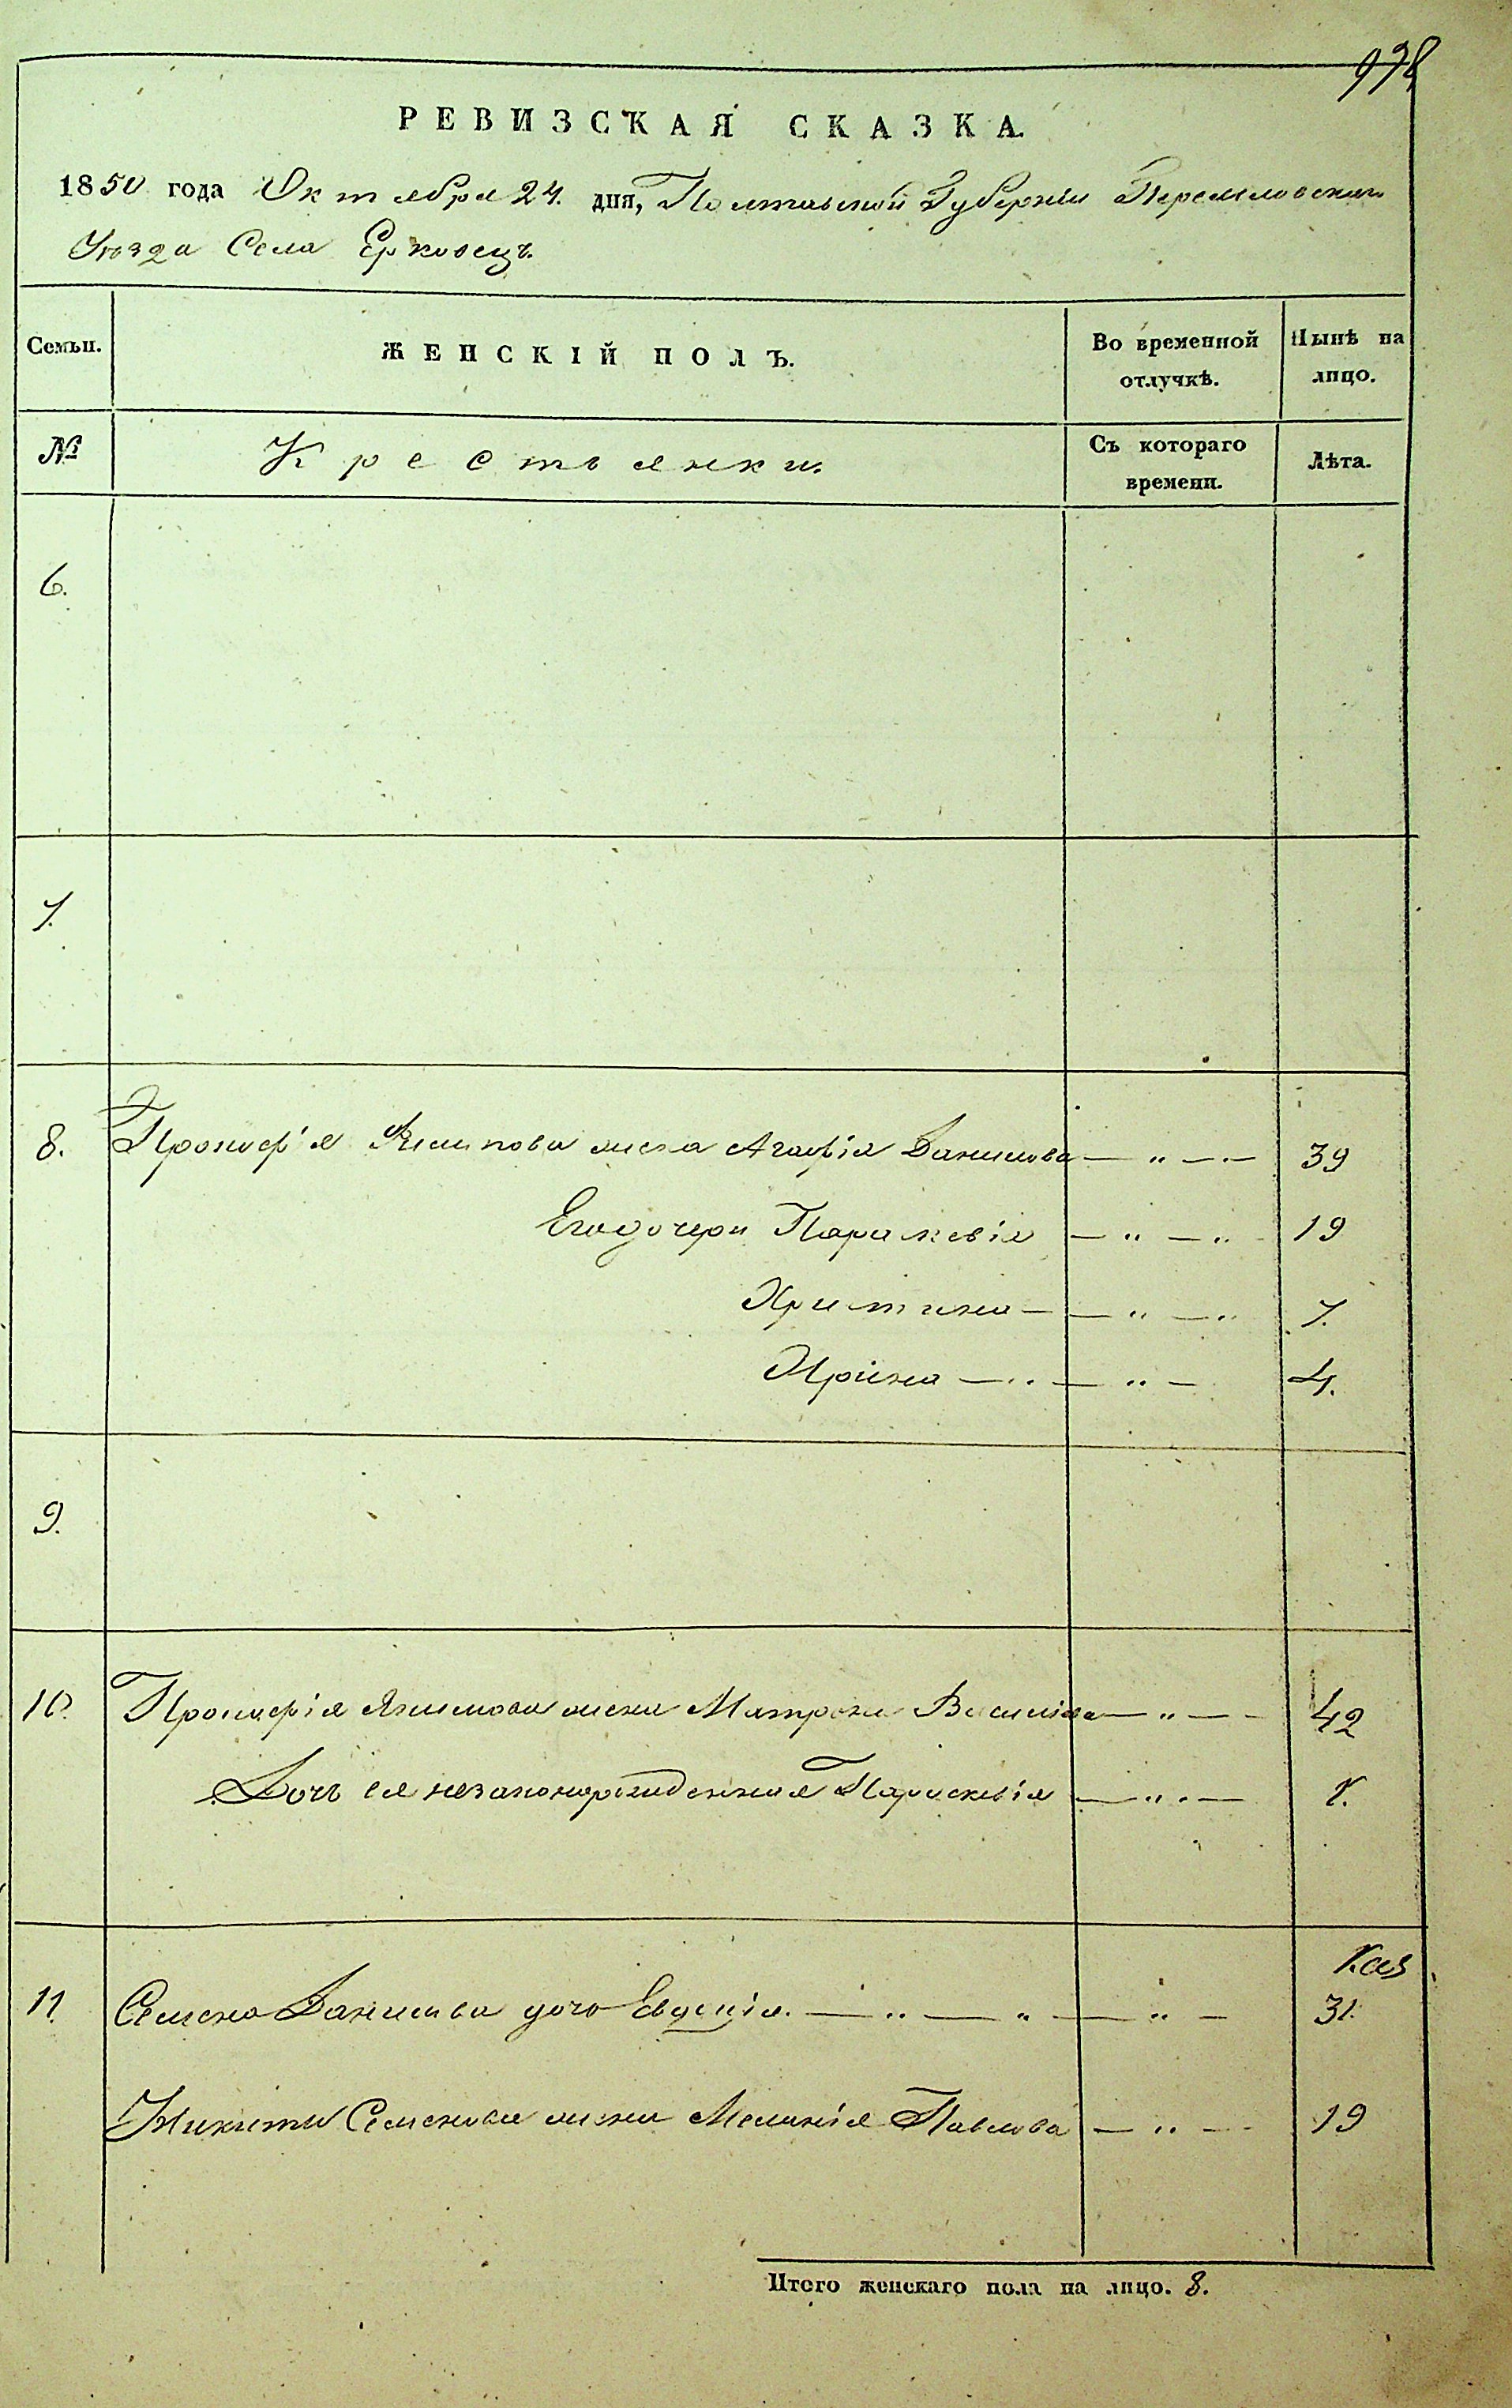 998
РЕВИЗСКАЯ СКАЗКА.
1850 года Октября 24. дня, Полтавской Губерніи Переясловскаго
Уѣзда Села Ерковецъ.
Семьи. ЖЕНСКІЙ ПОЛЪ. Во временной отлучкѣ. Нынѣ на лицо.
№ Крестьянки. Съ котораго времени. Лѣта.
6.
7.
8. Прокофія Филипова жена Агафія Данилова — „ — 39
Его дочери Параскевія — „ — „ 19
Христина — — „ — „ 7.
Ирина — „ — „ — 4.
9.
10. Прокофія Якимова жена Матрона Василіева — „ — 42
Дочь ея незаконорожденная Параскевія — „ — 
11. Семена Данилова дочь Евдокія. — „ — „ — „ — 31.
Никиты Семенова жена Меланія Павлова — „ — 19
Итого женскаго пола на лицо. 8.